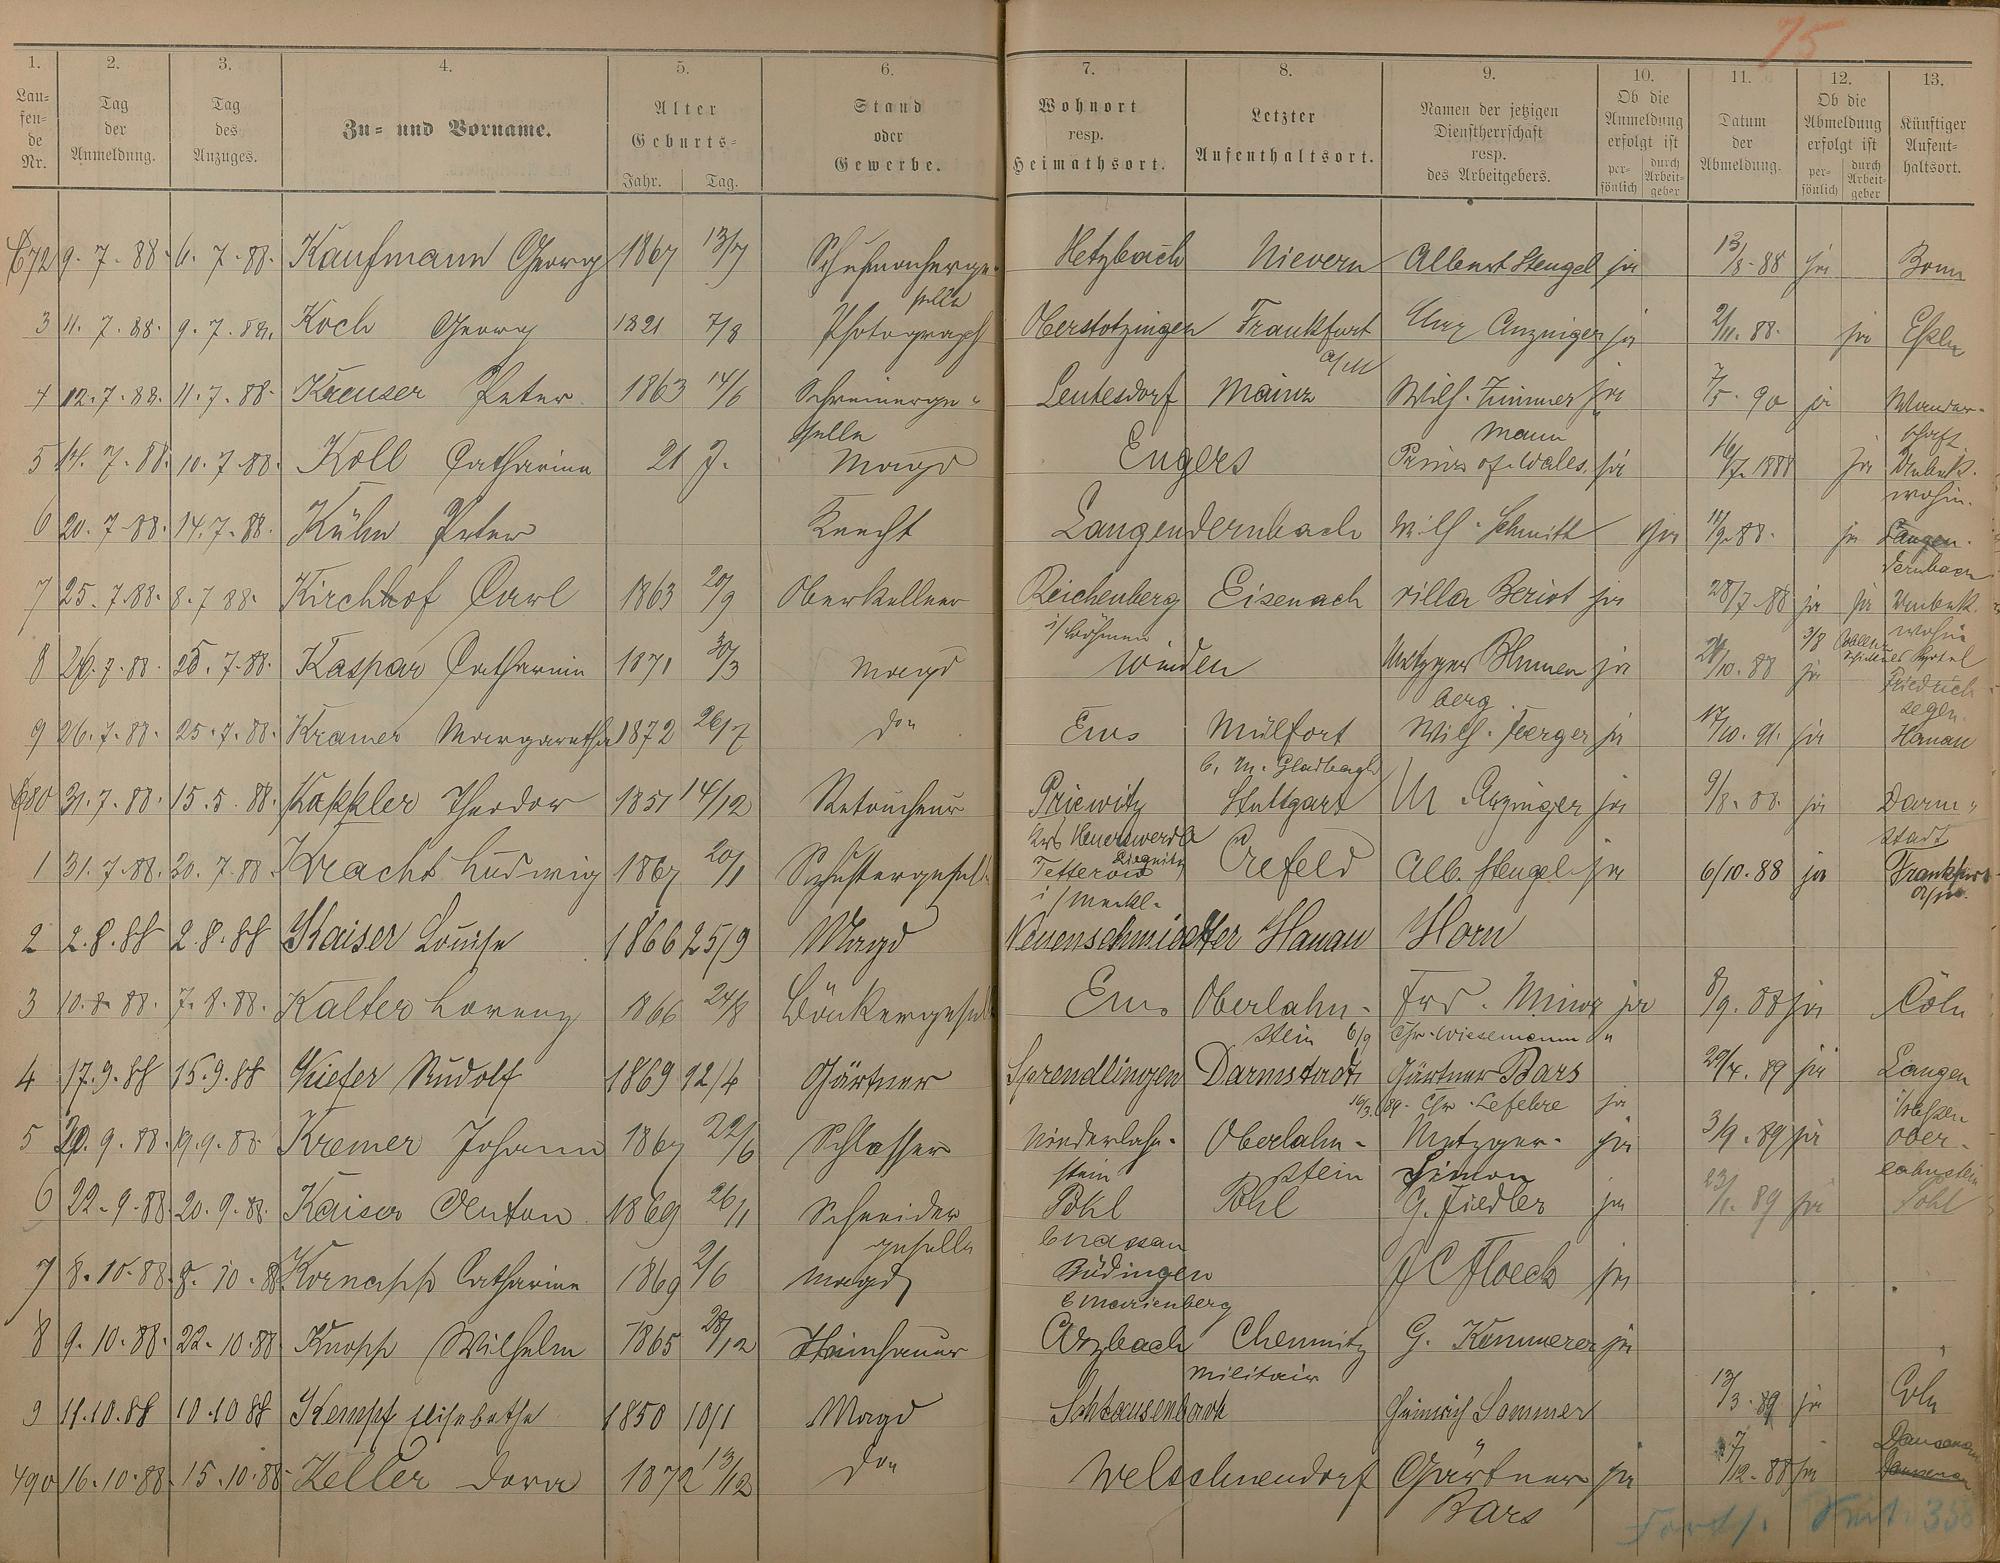 75
1. 2. 3. 4. 5. 6. 7. 8. 9. 10. 11. 12. 13.
Lau-fen-de Nr.
Tag der Anmeldung.
Tag des Anzuges.
Zu- und Vorname.
Alter Geburts- Jahr. Tag.
Stand oder Gewerbe.
Wohnort resp. Heimathsort.
Letzter Aufenthaltsort.
Namen der jetzigen Dienstherrschaft resp. des Arbeitgebers.
Ob die Anmeldung erfolgt ist per-sönlich durch Arbeit-geber
Datum der Abmeldung.
Ob die Abmeldung erfolgt ist per-sönlich durch Arbeit-geber
Künftiger Aufent-haltsort.
9. 7. 88. 6. 7. 88. Kaufmann Georg 1867 13/7 Hetzbach Nievern Albert Stengel ja 13/8. 88 ja Bonn
3 11. 7. 88. 9. 7. 88. Koch Georg 1821 7/8 Photograph Oberstotzingen Frankfurt a/M ja 2/11. 88. ja
4 12. 7. 88. 11. 7. 88. Kreuser Peter 1863 14/6 Schreinerge-selle Leutesdorf Mainz Wilh. Zimmer mann ja 7/5. 90 ja Wander-schaft
5 14. 7. 88. 10. 7. 88. Koll Catharina 21 J. Magd Engers Prinz of Wales ja 16/7. 1888 ja Unbek. wohin.
6 20. 7. 88. 14. 7. 88. Kühn Peter Knecht Langendernbach Wilh. Schmitt ja 11/9. 88. ja Langen-dernbach
7 25. 7. 88. 8. 7 88. Kirchhof Carl 1863 20/9 Oberkellner Reichenberg i/Böhmen Eisenach Villa Beriot ja 28/7. 88 ja ja Unbek. wohin
8 26. 7. 88. 25. 7. 88. Kaspar Catharina 1871 30/3 Magd Winden Metzger Blumen berg ja /10. 88 ja Friedrich-segen.
9 26. 7. 88. 25. 7. 88. Kramer Margaretha 1872 26/7 do Ems Mülfort b. M. Gladbach Wilh. ja 17/10. 91. ja Hanau
80 31. 7. 88. 15. 5. 88. Koppler Theodor 1851 14/12 Retoucheur Priewitz Stuttgart ja 9/8. 88. ja Darm-stadt
1 31. 7. 88. 20. 7. 88. Kracht Ludwig 1867 20/1 Schustergesell i/Meckl. Crefeld Alb. Stengel ja 6/10. 88 ja Frankfurt a/M.
2 2. 8. 88 2. 8. 88 Kaiser Louise 1866 25/9 Magd Neuenschmidter Hanau Horn
3 10. 8. 88. 7. 8. 88. Kalter Lorenz 1866 24/8 Bäckergesell Ems Oberlahn-stein Frd. Minor ja 8/9. 88 ja Cöln
6/9 Chr. Wiesemann "
4 17. 9. 88 15. 9. 88 Kiefer Rudolf 1869 12/4 Gärtner Sprendlingen Darmstadt Gärtner Bars 29/4. 89 ja Langen i/Hessen
16/3. 89. Chr. Lefebre ja
5 20. 9. 88. 19. 9. 88 Kremer Johann 1867 22/6 Schlosser Niederlahn-stein Oberlahn-stein Metzger Simon ja 3/9. 89 ja Ober-lahnstein
6 22. 9. 88. 20. 9. 88. Kaiser Anton 1869 26/1 Schneider geselle Pohl b Nassau Pohl G. Fiedler ja 23/1. 89 ja Pohl
7 8. 10. 88. 8. 10. 88. Kornapp Catharine 1869 2/6 Magd Büdingen b Marienberg J C Floeck ja
8 9. 10. 88. 22. 10. 88 Knopp Wilhelm 1865 28/12 Steinhauer Arzbach Chemnitz Militair G. Kemmerer ja
9 11. 10. 88 10. 10 88 Kempf Elisabetha 1850 10/1 Magd Heinrich Sommer 13/3. 89 ja Coln
490 16. 10. 88. 15. 10. 88. Keller Dora 1872 13/12 do Welschneudorf Gärtner Bars ja 7/12. 88 ja Dausenau Dausenau